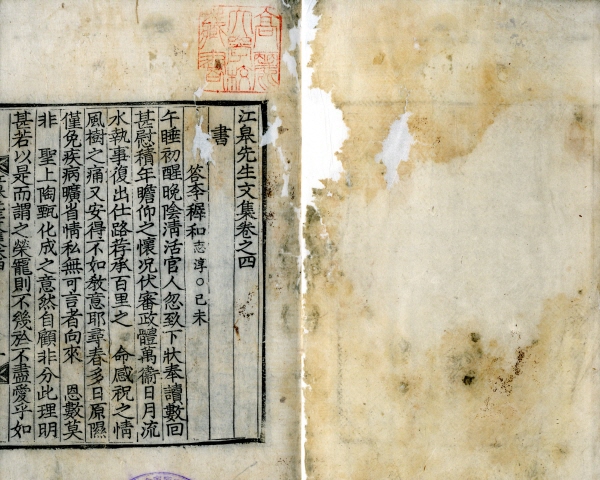 江皐先生文集卷之四
書
答李穉和志淳○己未
午睡初醒晚陰淸活官人忽致下狀奉讀數回
甚慰積年瞻仰之懷況伏審政體萬衛日月流
水執事復出仕路荐承百里之 命感祝之情
風樹之痛又安得不如敎意耶尋春多日原隰
僅免疾病曠省情私無可言者向來 恩數莫
非 聖上陶甄化成之意然自顧非分此理明
甚若以是而謂之榮寵則不幾於不盡愛乎如